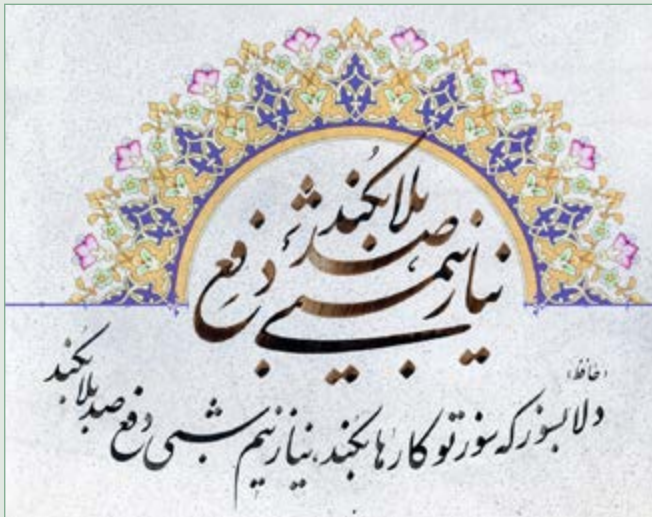 نیاز نیمشبی دفع
صد بلا بکند
«حافظ»
دلا بسوز که سوز تو کارها بکند، نیاز نیم شبی دفع صد بلا بکند